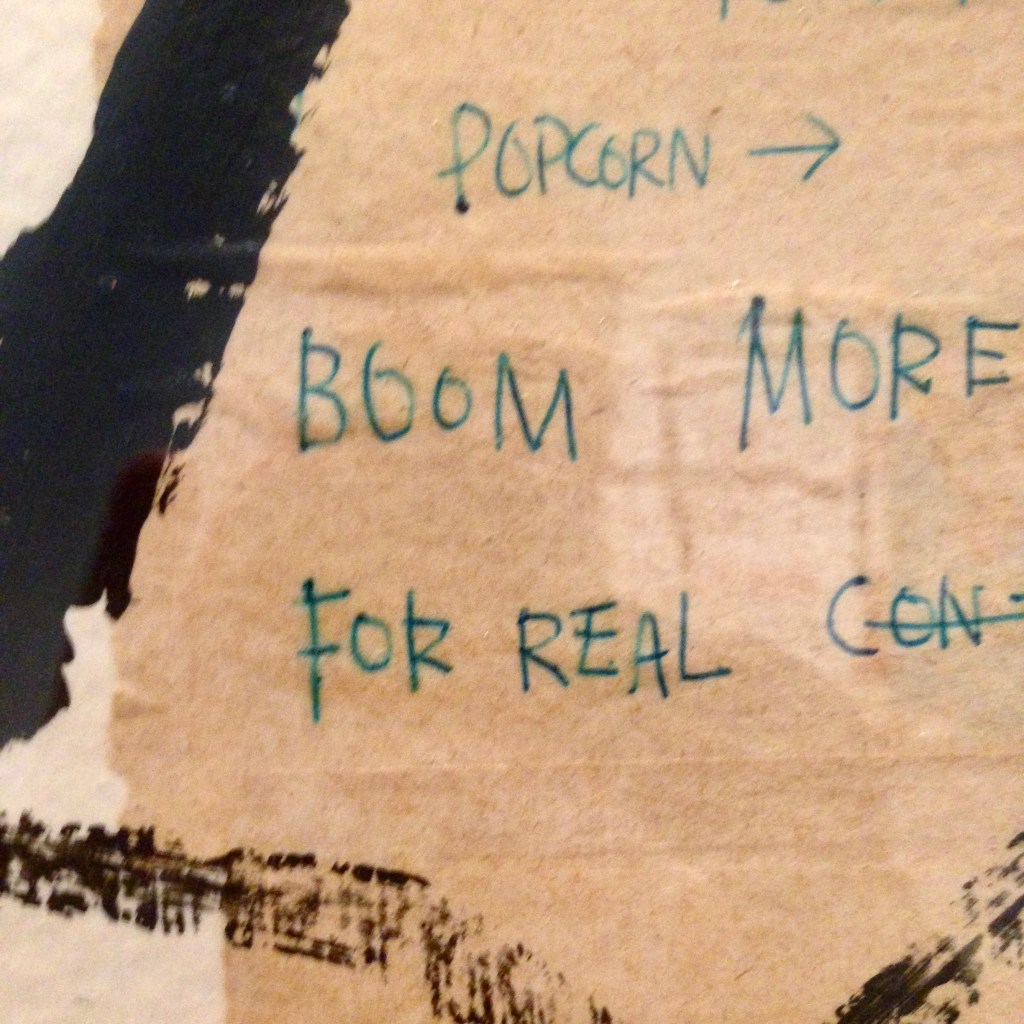 POPCORN →
BOOM MORE
FOR REAL CON